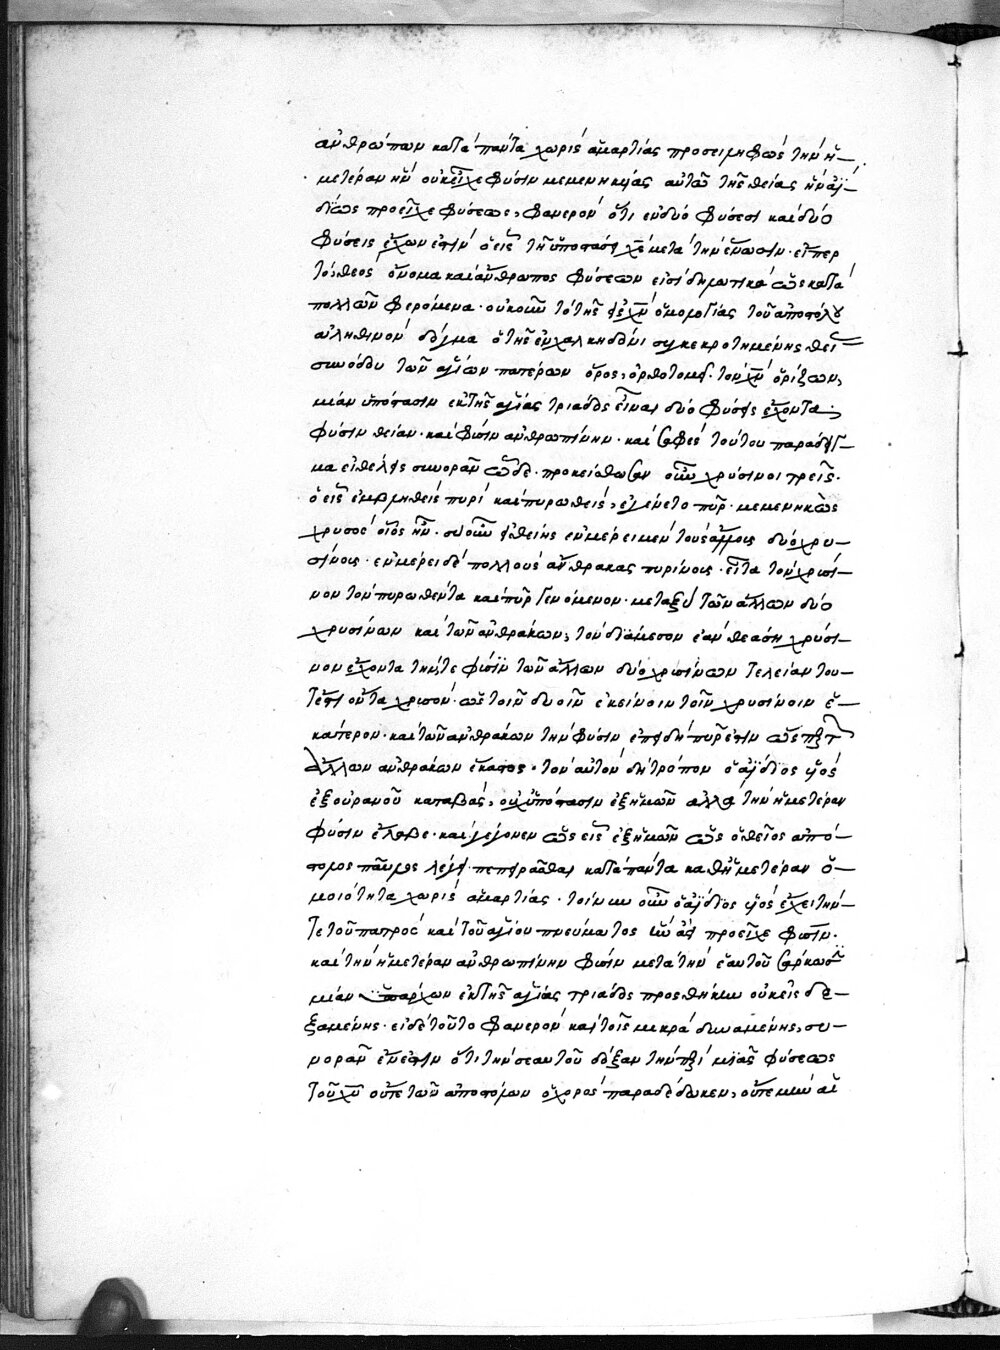 ἀνθρώπων κατὰ πάντα χωρὶς ἁμαρτίας προσειληφὼς τὴν ἡ-
μετέραν ἣν οὐκ εἶχε φύσιν μεμενηκυίας αὐτῶ τῆς θείας ἣν ἀϊ-
δίως προεῖχε φύσεως, φανερὸν ὅτι ἐν δυὸ φύσεσι καὶ δυὸ
φύσεις ἔχων ἐστὶν ὁ εἷς τῆ ὑποστάσει χς μετὰ τὴν ἕνωσιν. εἴπερ
τὸ θεὸς ὄνομα καὶ ἄνθρωπος φύσεων εἰσὶ δηλωτικὰ ὡς κατὰ
πολλῶν φερόμενα. οὐκοῦν τὸ τῆς εἰς χν ὁμολογίας τοῦ ἀποστόλου
ἀληθινὸν δόγμα ὁ τῆς ἐν χαλκηδόνι συγκεκροτημένης θεί-
συνόδου τῶν ἁγίων πατέρων ὅρος, ὀρθοτομεῖ. τὸν χν ὁρίζων,
μίαν ὑπόστασιν ἐκ τῆς ἁγίας τριάδος εἶναι δυὸ φύσεις ἔχοντα,
φύσιν θείαν. καὶ φύσιν ἀνθρωπίνην. καὶ σαφὲς τούτου παράδειγ-
μα εἰ θέλεις συνορᾶν ὧδε. προκείσθωσαν οὖν χρύσινοι τρεῖς.
ὁ εἷς ἐμβληθεὶς πυρὶ καὶ πυρωθεὶς, ἐγένετο πῦρ. μεμενηκὼς
χρυσὸς οἷος ἦν. σὺ οὖν εἰ θείης ἐν μέρει μὲν τοὺς ἄλλους δύο χρυ-
σίνους. ἐν μέρει δὲ πολλοὺς ἄνθρακας πυρίνους. εἶτα τὸν χρυσί-
νον τὸν πυρωθέντα καὶ πῦρ γενόμενον. μεταξὺ τῶν ἄλλων δύο
χρυσίνων καὶ τῶν ἀνθράκων, τὸν διάμεσον ἐὰν θεάση χρύσι-
νον ἔχοντα τήν τε φύσιν τῶν ἄλλων δύο χρυσίνων τελείαν του-
τέστιν ὄντα χρυσὸν. ὡς τοῖν δυοῖν ἐκείνοιν τοῖν χρυσίνοιν ἑ-
κάτερον. καὶ τῶν ἀνθράκων τὴν φύσιν ἐπειδὴ πῦρ ἐστιν ὡς περὶ τ
ἄλλων ἀνθράκων ἕκαστος. τὸν αὐτὸν δὴ τρόπον ὁ ἀΐδιος υἱὸς
ἐξ οὐρανοῦ καταβὰς, οὐχ ὑπόστασιν ἐξ ἡμῶν ἀλλὰ τὴν ἡμετέραν
φύσιν ἔλαβε. καὶ γέγονεν ὡς εἷς ἐξ ἡμῶν ὡς ὁ θεῖος ἀπό-
στολος παῦλος λέγει. πεπειρᾶσθαι κατὰ πάντα καθ' ἡμετέραν ὁ-
μοιότητα χωρὶς ἁμαρτίας. τοίνυν οὖν ὁ ἀΐδιος υἱὸς ἔχει τήν-
τε τοῦ πατρὸς καὶ τοῦ ἁγίου πνεύματος ἣν ἀεὶ προεῖχε φύσιν.
καὶ τὴν ἡμετέραν ἀνθρωπίνην φύσιν μετὰ τὴν ἑαυτοῦ σάρκωσιν
μίαν ὑπάρχων ἐκ τῆς ἁγίας τριάδος προσθήκην οὐκ εἰσδε-
ξαμένης. εἰ δὲ τοῦτο φανερὸν καὶ τοῖς μικρὰ δυναμένοις, συ-
νορᾶν ἔνεστιν ὅτι τὴν σεαυτοῦ δόξαν τὴν περὶ μιᾶς φύσεως
τοῦ χυ οὔτε τῶν ἀποστόλων ὁ χορὸς παραδέδωκεν, οὔτε μὴν αἱ